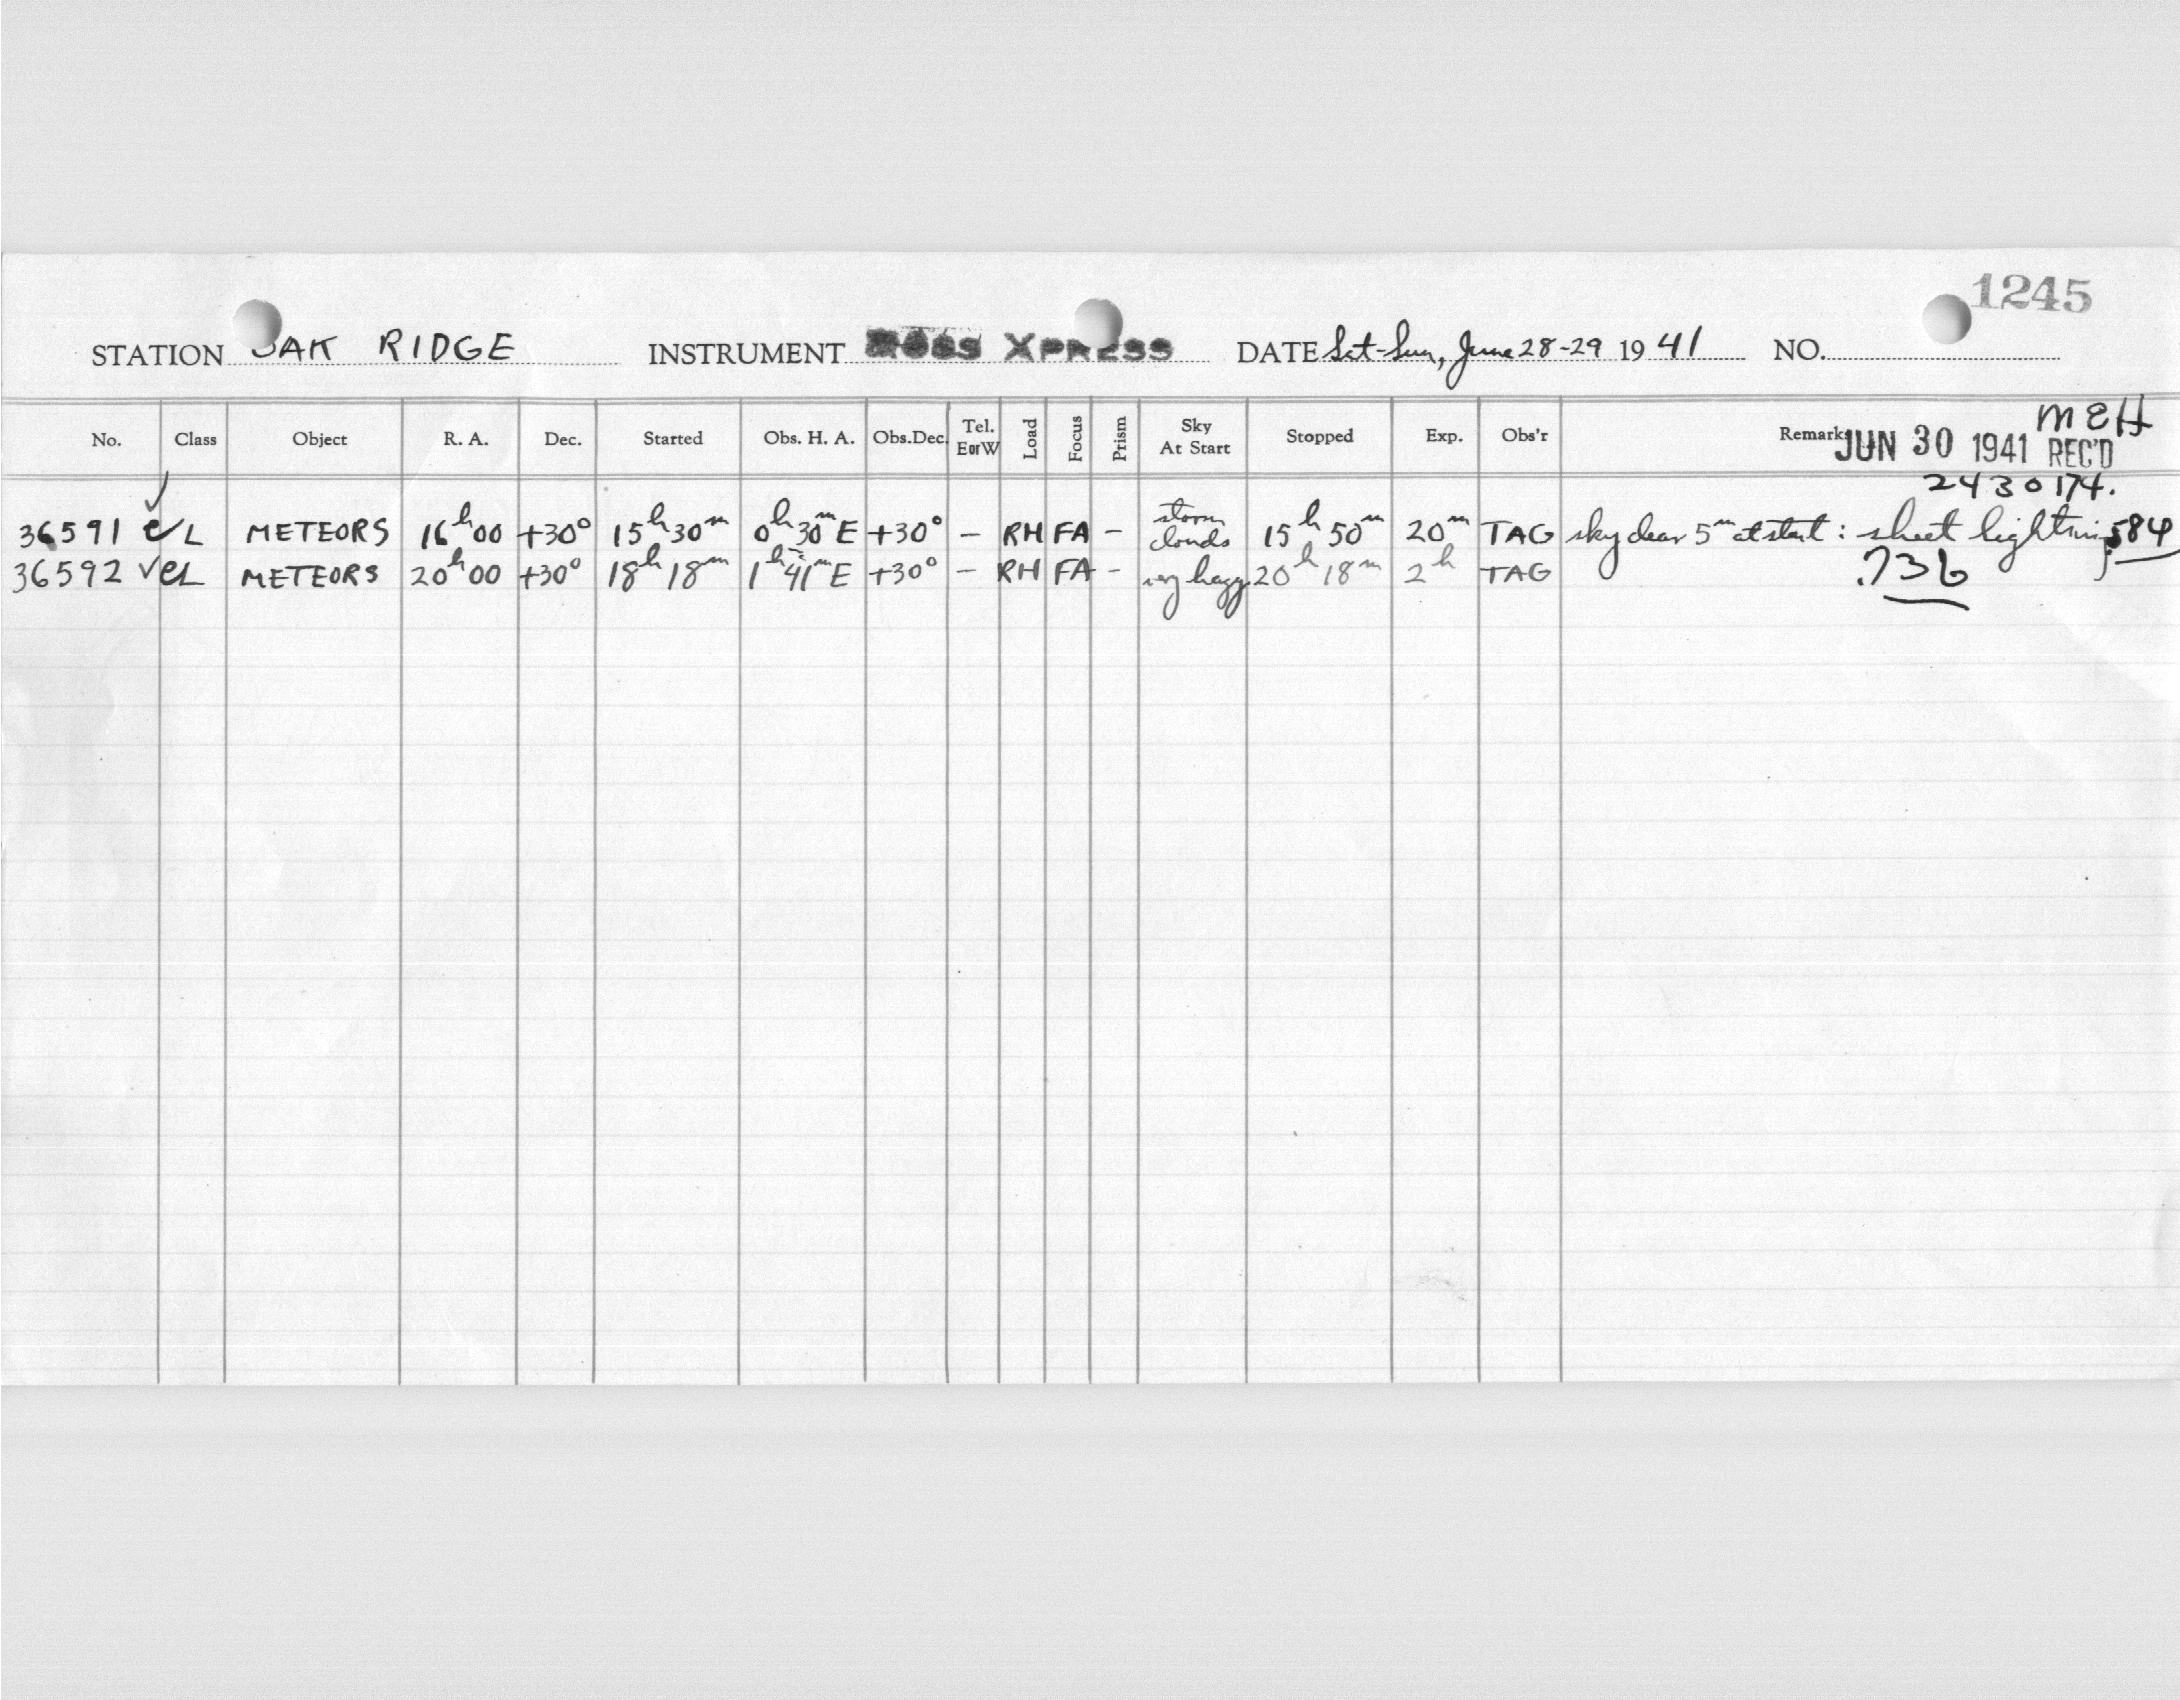 1245
STATION OAK RIDGE INSTRUMENT ROSS XPRESS DATE Sat-Sun, June 28-29 19 41 NO.
No. Class Object R. A. Dec. Started Obs. H. A. Obs.Dec. Tel. E or W Load Focus Prism Sky At Start Stopped Exp. Obs'r Remarks MEH
JUN 30 1941 REC'D
2430174.
36591 ✓ eL METEORS 16h00 +30° 15h30m 0h30mE +30° – RH FA – storm clouds 15h50m 20m TAG sky clear 5m at start: sheet lightning .584
36592 ✓ eL METEORS 20h00 +30° 18h18m 1h41mE +30° – RH FA – very hazy 20h18m 2h TAG .736